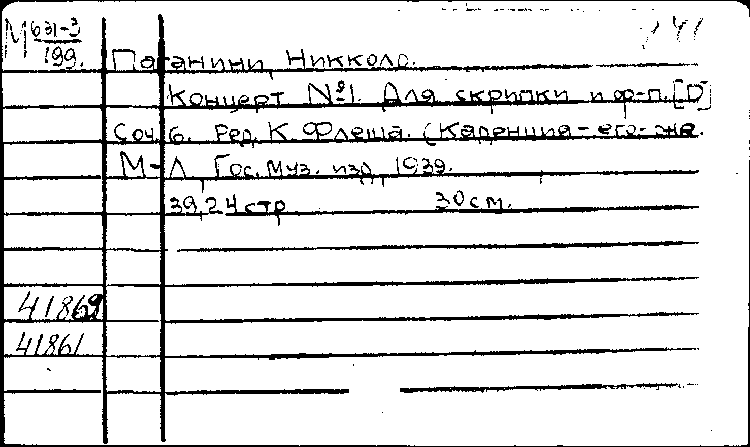 М 631-3
199.
Паганини, Никколо.
Концерт №1. Для скрипки и ф-п. [D]
Соч. 6. Ред. К. Флеша. (Каденция - его-же.
М-Л, Гос. Муз. изд, 1939.
39, 24 стр 30 см.
41869
41861